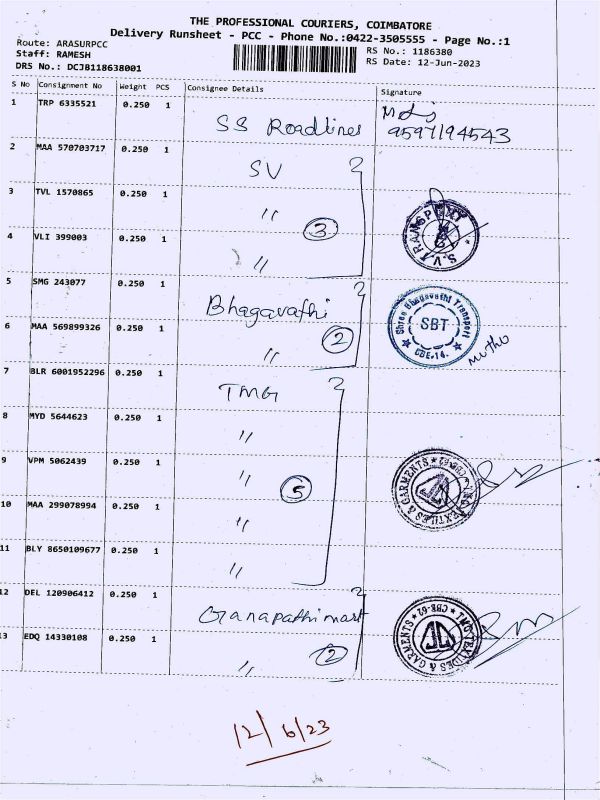 THE PROFESSIONAL COURIERS, COIMBATORE
Delivery Runsheet - PCC - Phone No.:0422-3505555 - Page No.:1
Route: ARASURPCC
Staff: RAMESH
DRS No.: DCJB118638001
RS No.: 1186380
RS Date: 12-Jun-2023
S No Consignment No Weight PCS Consignee Details Signature
1 TRP 6335521 0.250 1 SS Roadlines 9597194543
2 MAA 570703717 0.250 1 SV
3 TVL 1570865 0.250 1 " 3
4 VLI 399003 0.250 1 "
S.V. TRANSPORT
5 SMG 243077 0.250 1 Bhagavathi
6 MAA 569899326 0.250 1 " 2
Shree Bhagavathi Transport
SBT
CBE-14.
Muthu
7 BLR 6001952296 0.250 1 TMG
8 MYD 5644623 0.250 1 "
9 VPM 5062439 0.250 1 " 5
10 MAA 299078994 0.250 1 "
11 BLY 8650109677 0.250 1 "
TEXTILES & GARMENTS * CBE-62 *
12 DEL 120906412 0.250 1 Ganapathi mart
13 EDQ 14330108 0.250 1 " 2
TEXTILES & GARMENTS * CBE-62 *
12/6/23